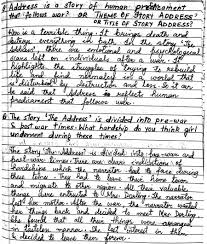 Address is a story of human predicament
that follows war? OR THEME OF STORY ADDRESS?
OR TITLE OF STORY ADDRESS?
War is a terrible thing. It brings death and
destroy everything on both sides. In the story 'The
Address', there are emotional and psychological
scars left on individuals after a war. It
highlights the struggles of trying to rebuild
life and find normalcy in a world that
is disturbed by destruction and loss. So it can
be said that Address to reflect human
predicament that follows war.
The story 'The Address' is divided into pre-war
& post war times. What hardship do you think girl
underwent during these times?
The story 'The Address' is divided into pre-war and
post-war times. There are clear indications of
hardships which the narrator had to face during
these times. They had to leave their home
and migrate to other region. All their valuable
things were entrusted to Mrs. Dorling. The narrator
lost her mother. After the war, the narrator wanted
her things back and decided to meet Mrs. Dorling
She found that all their things were arranged
in tasteless manner. She lost interest in this
& decided to leave them forever.